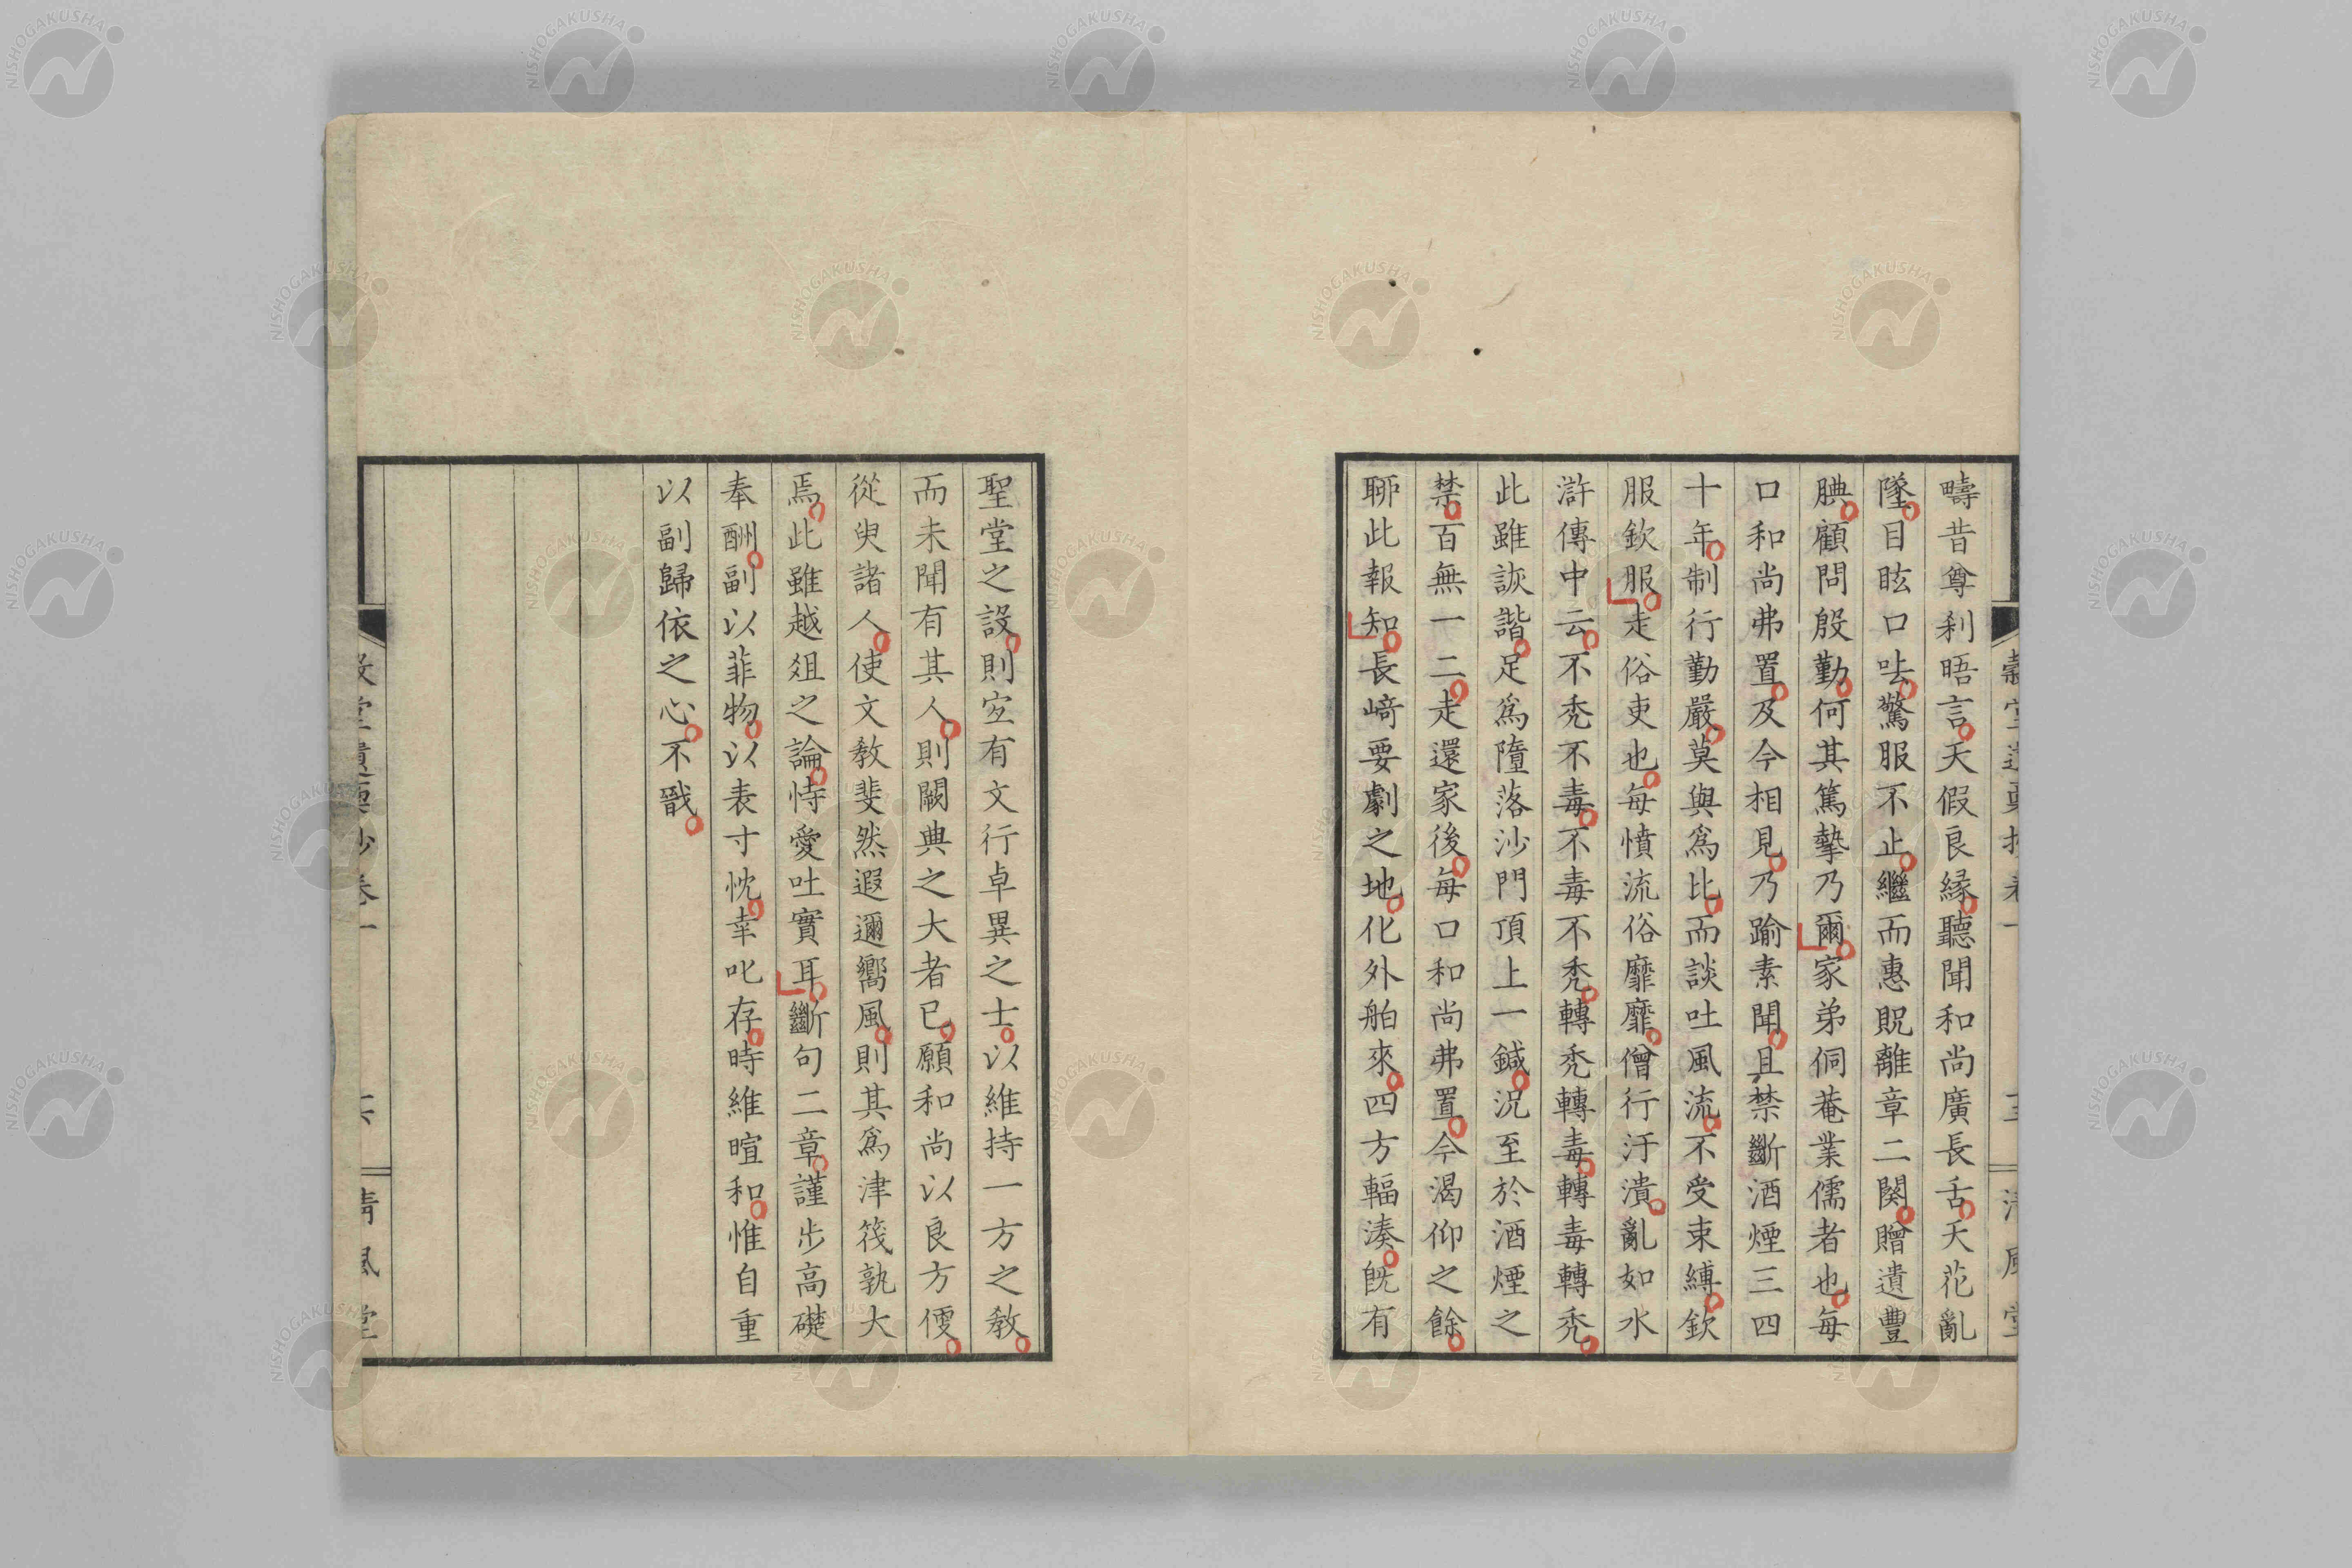 疇昔尊刹晤言天假良緣聽聞和尚廣長舌天花亂
墜目眩口呿驚服不止繼而惠貺離章二闋贈遺豐
腆顧問殷勤何其篤摯乃爾家弟侗菴業儒者也每
口和尚弗置及今相見乃踰素聞且禁斷酒煙三四
十年制行勤嚴莫與爲比而談吐風流不受束縛欽
服欽服走俗吏也每憤流俗靡靡僧行汙瀆亂如水
滸傳中云不秃不毒不毒不秃轉秃轉毒轉毒轉秃
此雖詼諧足爲墮落沙門頂上一鍼況至於酒煙之
禁百無一二走還家後每口和尚弗置今渴仰之餘
聊此報知長﨑要劇之地化外舶來四方輻湊旣有
聖堂之設則宐有文行卓異之士以維持一方之敎
而未聞有其人則闕典之大者已願和尚以良方便
從臾諸人使文敎斐然遐邇嚮風則其爲津筏孰大
焉此雖越俎之論恃愛吐實耳斷句二章謹步高礎
奉酬副以菲物以表寸忱幸叱存時維暄和惟自重
以副歸依之心不戩
清風堂